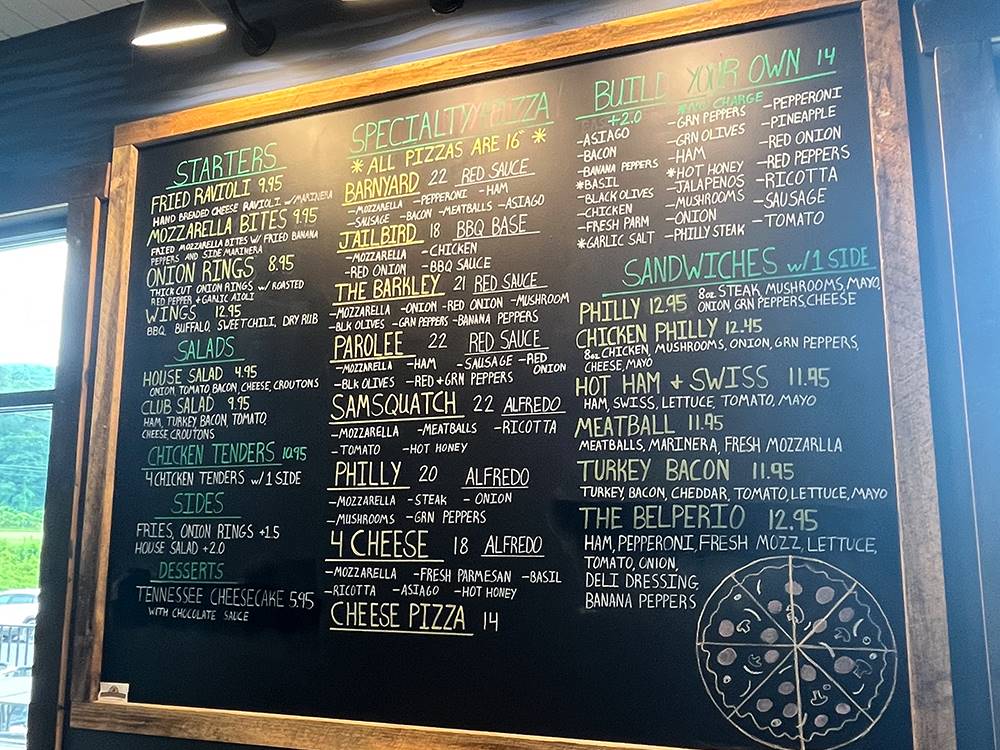 STARTERS
FRIED RAVIOLI 9.95
HAND BREADED CHEESE RAVIOLI w/MARINERA
MOZZARELLA BITES 9.95
FRIED MOZZARELLA BITES W/ FRIED BANANA
PEPPERS AND SIDE MARINERA
ONION RINGS 8.95
THICK CUT ONION RINGS w/ ROASTED
RED PEPPER + GARLIC AIOLI
WINGS 12.95
BBQ, BUFFALO, SWEET CHILI, DRY RUB
SALADS
HOUSE SALAD 4.95
ONION, TOMATO BACON, CHEESE, CROUTONS
CLUB SALAD 9.95
HAM, TURKEY BACON, TOMATO,
CHEESE, CROUTONS
CHICKEN TENDERS 10.95
4 CHICKEN TENDERS w/1 SIDE
SIDES
FRIES, ONION RINGS +1.5
HOUSE SALAD +2.0
DESSERTS
TENNESSEE CHEESECAKE 5.95
WITH CHOCOLATE SAUCE
SPECIALTY PIZZA
*ALL PIZZAS ARE 16" *
BARNYARD 22 RED SAUCE
-MOZZARELLA -PEPPERONI -HAM
-SAUSAGE -BACON -MEATBALLS -ASIAGO
JAILBIRD 18 BBQ BASE
-MOZZARELLA -CHICKEN
-RED ONION -BBQ SAUCE
THE BARKLEY 21 RED SAUCE
-MOZZARELLA -ONION -RED ONION -MUSHROOM
-BLK OLIVES -GRN PEPPERS -BANANA PEPPERS
PAROLEE 22 RED SAUCE
-MOZZARELLA -HAM -SAUSAGE -RED ONION
-BLK OLIVES -RED+GRN PEPPERS
SAMSQUATCH 22 ALFREDO
-MOZZARELLA -MEATBALLS -RICOTTA
-TOMATO -HOT HONEY
PHILLY 20 ALFREDO
-MOZZARELLA -STEAK -ONION
-MUSHROOMS -GRN PEPPERS
4 CHEESE 18 ALFREDO
-MOZZARELLA -FRESH PARMESAN -BASIL
-RICOTTA -ASIAGO -HOT HONEY
CHEESE PIZZA 14
BUILD YOUR OWN 14
+2.0 *NO CHARGE
-ASIAGO
-BACON
-BANANA PEPPERS
*BASIL
-BLACK OLIVES
-CHICKEN
-FRESH PARM
*GARLIC SALT
-GRN PEPPERS
-GRN OLIVES
-HAM
*HOT HONEY
-JALAPENOS
-MUSHROOMS
-ONION
-PHILLY STEAK
-PEPPERONI
-PINEAPPLE
-RED ONION
-RED PEPPERS
-RICOTTA
-SAUSAGE
-TOMATO
SANDWICHES w/1 SIDE
PHILLY 12.95 8oz STEAK, MUSHROOMS, MAYO,
ONION, GRN PEPPERS, CHEESE
CHICKEN PHILLY 12.45
8oz CHICKEN, MUSHROOMS, ONION, GRN PEPPERS,
CHEESE, MAYO
HOT HAM + SWISS 11.95
HAM, SWISS, LETTUCE, TOMATO, MAYO
MEATBALL 11.95
MEATBALLS, MARINERA, FRESH MOZZARLLA
TURKEY BACON 11.95
TURKEY, BACON, CHEDDAR, TOMATO, LETTUCE, MAYO
THE BELPERIO 12.95
HAM, PEPPERONI, FRESH MOZZ, LETTUCE,
TOMATO, ONION,
DELI DRESSING
BANANA PEPPERS